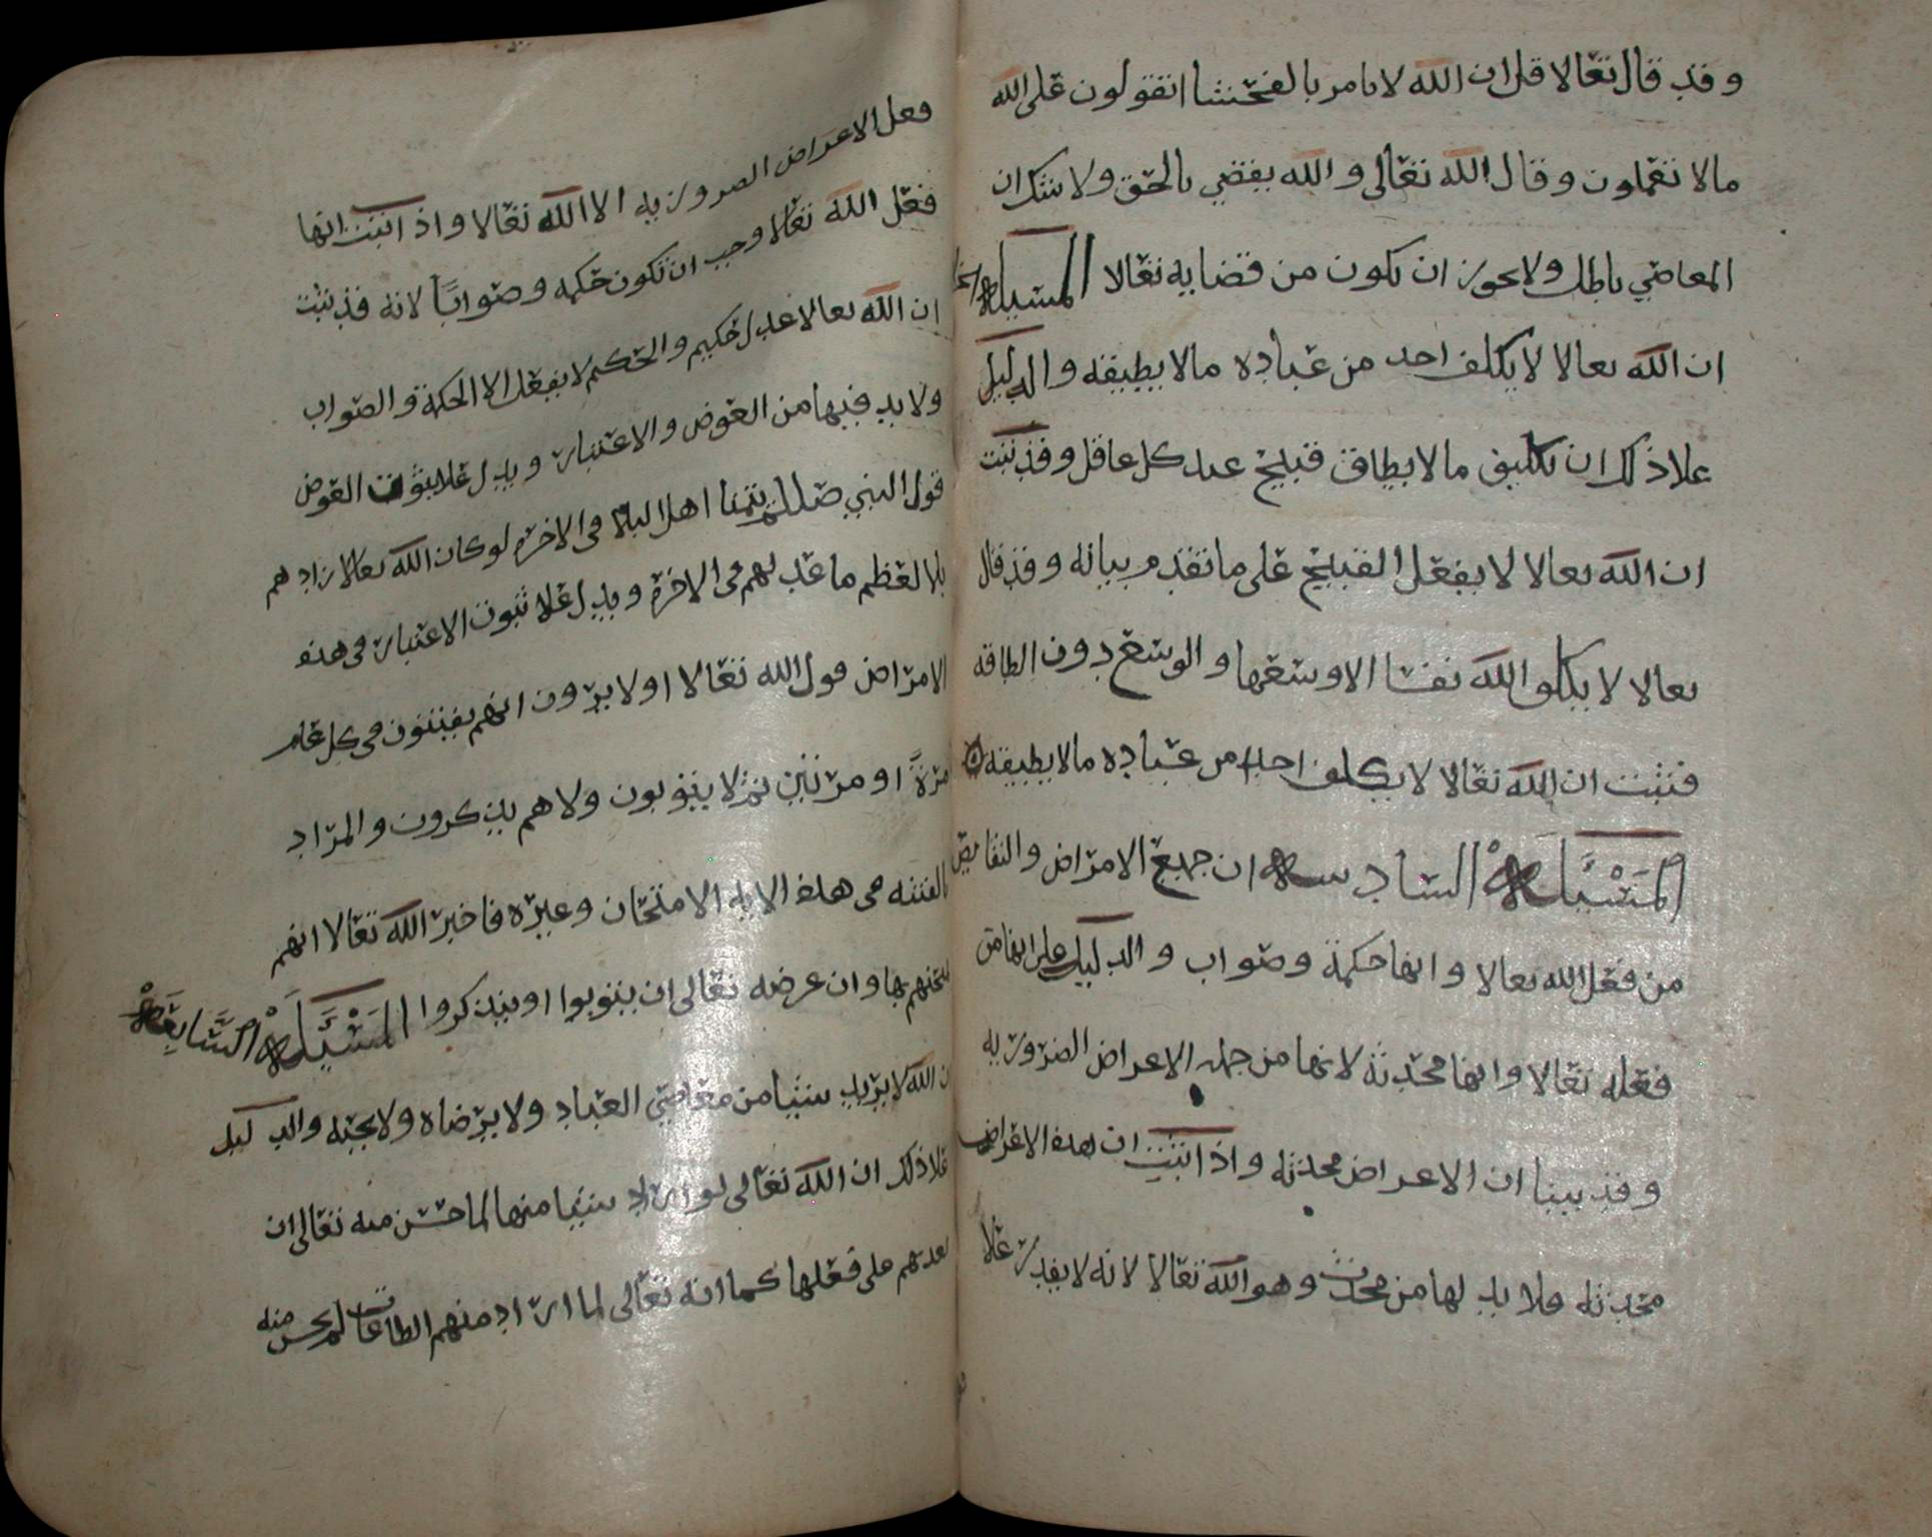 وقد قال تعالا قل ان الله لا يامر بالفحشا اتقولون على الله
مالا تعملون وقال الله تعالى والله يقضي بالحق ولا شك ان
المعاصي باطل ولا يجوز ان يكون من قضايه تعالا المسيلة
ان الله تعالا لا يكلف احد من عباده مالا يطيقه والدليل
علا ذلك ان تكليف مالا يطاق قبيح عند كل عاقل وقد ثبت
ان الله تعالا لا يفعل القبيح على ما تقدم بيانه وقد قال
تعالا لا يكلف الله نفسا الا وسعها والوسع دون الطاقه
فثبت ان الله تعالا لا يكلف احدا من عباده مالا يطيقه
المسيلة السادسه ان جميع الامراض والنقايص
من فعل الله تعالا وانها حكمة وصواب والدليل على انها من
فعله تعالا وانها محدثة لانها من جمله الاعراض الضروريه
وقد بينا ان الاعراض محدثه واذا ثبت ان هذه الاعراض
محدثه فلا بد لها من محدث وهو الله تعالا لانه لا يقدر علا
فعل الاعراض الضروريه الا الله تعالا واذ اثبت انها
فعل الله تعالا وجب ان تكون حكمه وصوابا لانه قد ثبت
ان الله تعالا عدل حكيم والحكيم لا يفعل الا الحكمة والصواب
ولا بد فيها من العوض والاعتبار ويدل علا ثبوت العوض
قول النبي صللم يتمنا اهل البلا في الاخره لو كان الله تعالا زادهم
بلا لعظم ما عد لهم في الاخرة ويدل علا ثبوت الاعتبار في هذه
الامراض قول الله تعالا اولا يرون انهم يفتنون في كل عام
مرة او مرتين ثم لا يتوبون ولا هم يذكرون والمراد
بالفتنه في هذه الايه الامتحان وغيره فاخبر الله تعالا انهم
يمتحنهم بها وان غرضه تعالى ان يتوبوا او يتذكروا المسيلة السابعة
ان الله لا يريد شيا من معاصي العباد ولا يرضاه ولا يحبه والدليل
علا ذلك ان الله تعالى لو اراد شيا منها لما حسن منه تعالى ان
يعذبهم على فعلها كما انه تعالى لما اراد منهم الطاعات لم يحسن منه